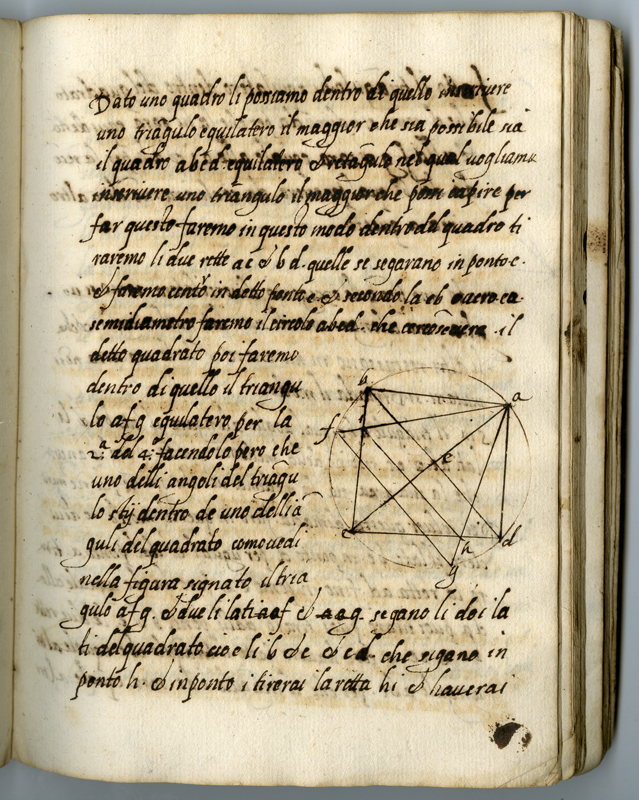 Dato uno quadro li possiamo dentro di quello inscrivere
uno triāgulo equilatero il maggior che sia possibile sia
il quadro abcd equilatero & retāgulo nel qual vogliamo
inscrivere uno triangulo il maggior che possi capire per
far questo faremo in questo modo dentro dal quadro ti
raremo li due rette ac & bd. quelle se segarano in ponto e.
& faremo centro in detto ponto e & secondo la eb overo ea.
semidiametro faremo il circolo abcd. che il
detto quadrato poi faremo
dentro di quello il triangu
lo afg equilatero per la
2.a del 4.o facendolo pero che
uno delli angoli del triāgu
lo stij dentro de uno delli ā
guli del quadrato como vedi
nella figura signato il tria
gulo afg. & due li lati af & ag. segano li doi la
ti del quadrato cioe li b & c & cd. che sigano in
ponto h. & in ponto i tirerai la retta hi & haverai
b
a
f
i
e
c
h
d
g